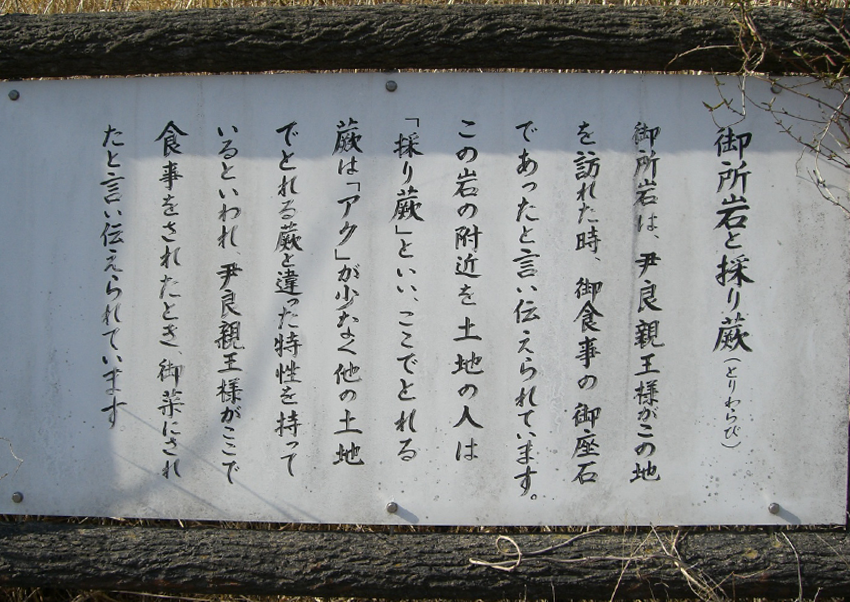 御所岩と採り蕨(とりわらび)
御所岩は、尹良親王様がこの地
を訪れた時、御食事の御座石
であったと言い伝えられています。
この岩の附近を土地の人は
「採り蕨」といい、ここでとれる
蕨は「アク」が少なく他の土地
でとれる蕨と違った特性を持って
いるといわれ、尹良親王様がここで
食事をされたとき、御菜にされ
たと言い伝えられています